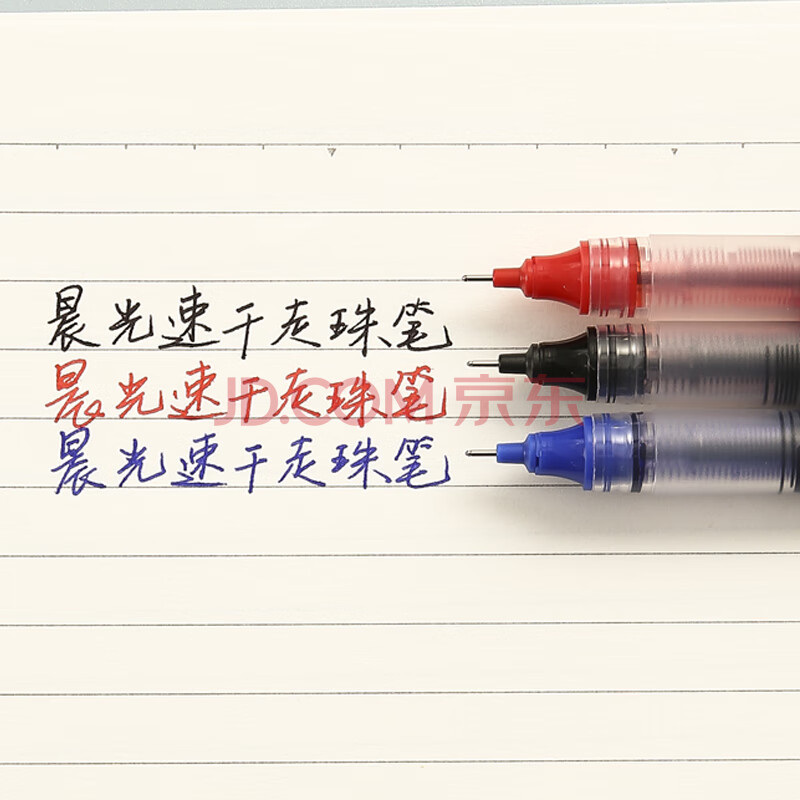 晨光速干走珠笔
晨光速干走珠笔
JD.COM 京东
晨光速干走珠笔